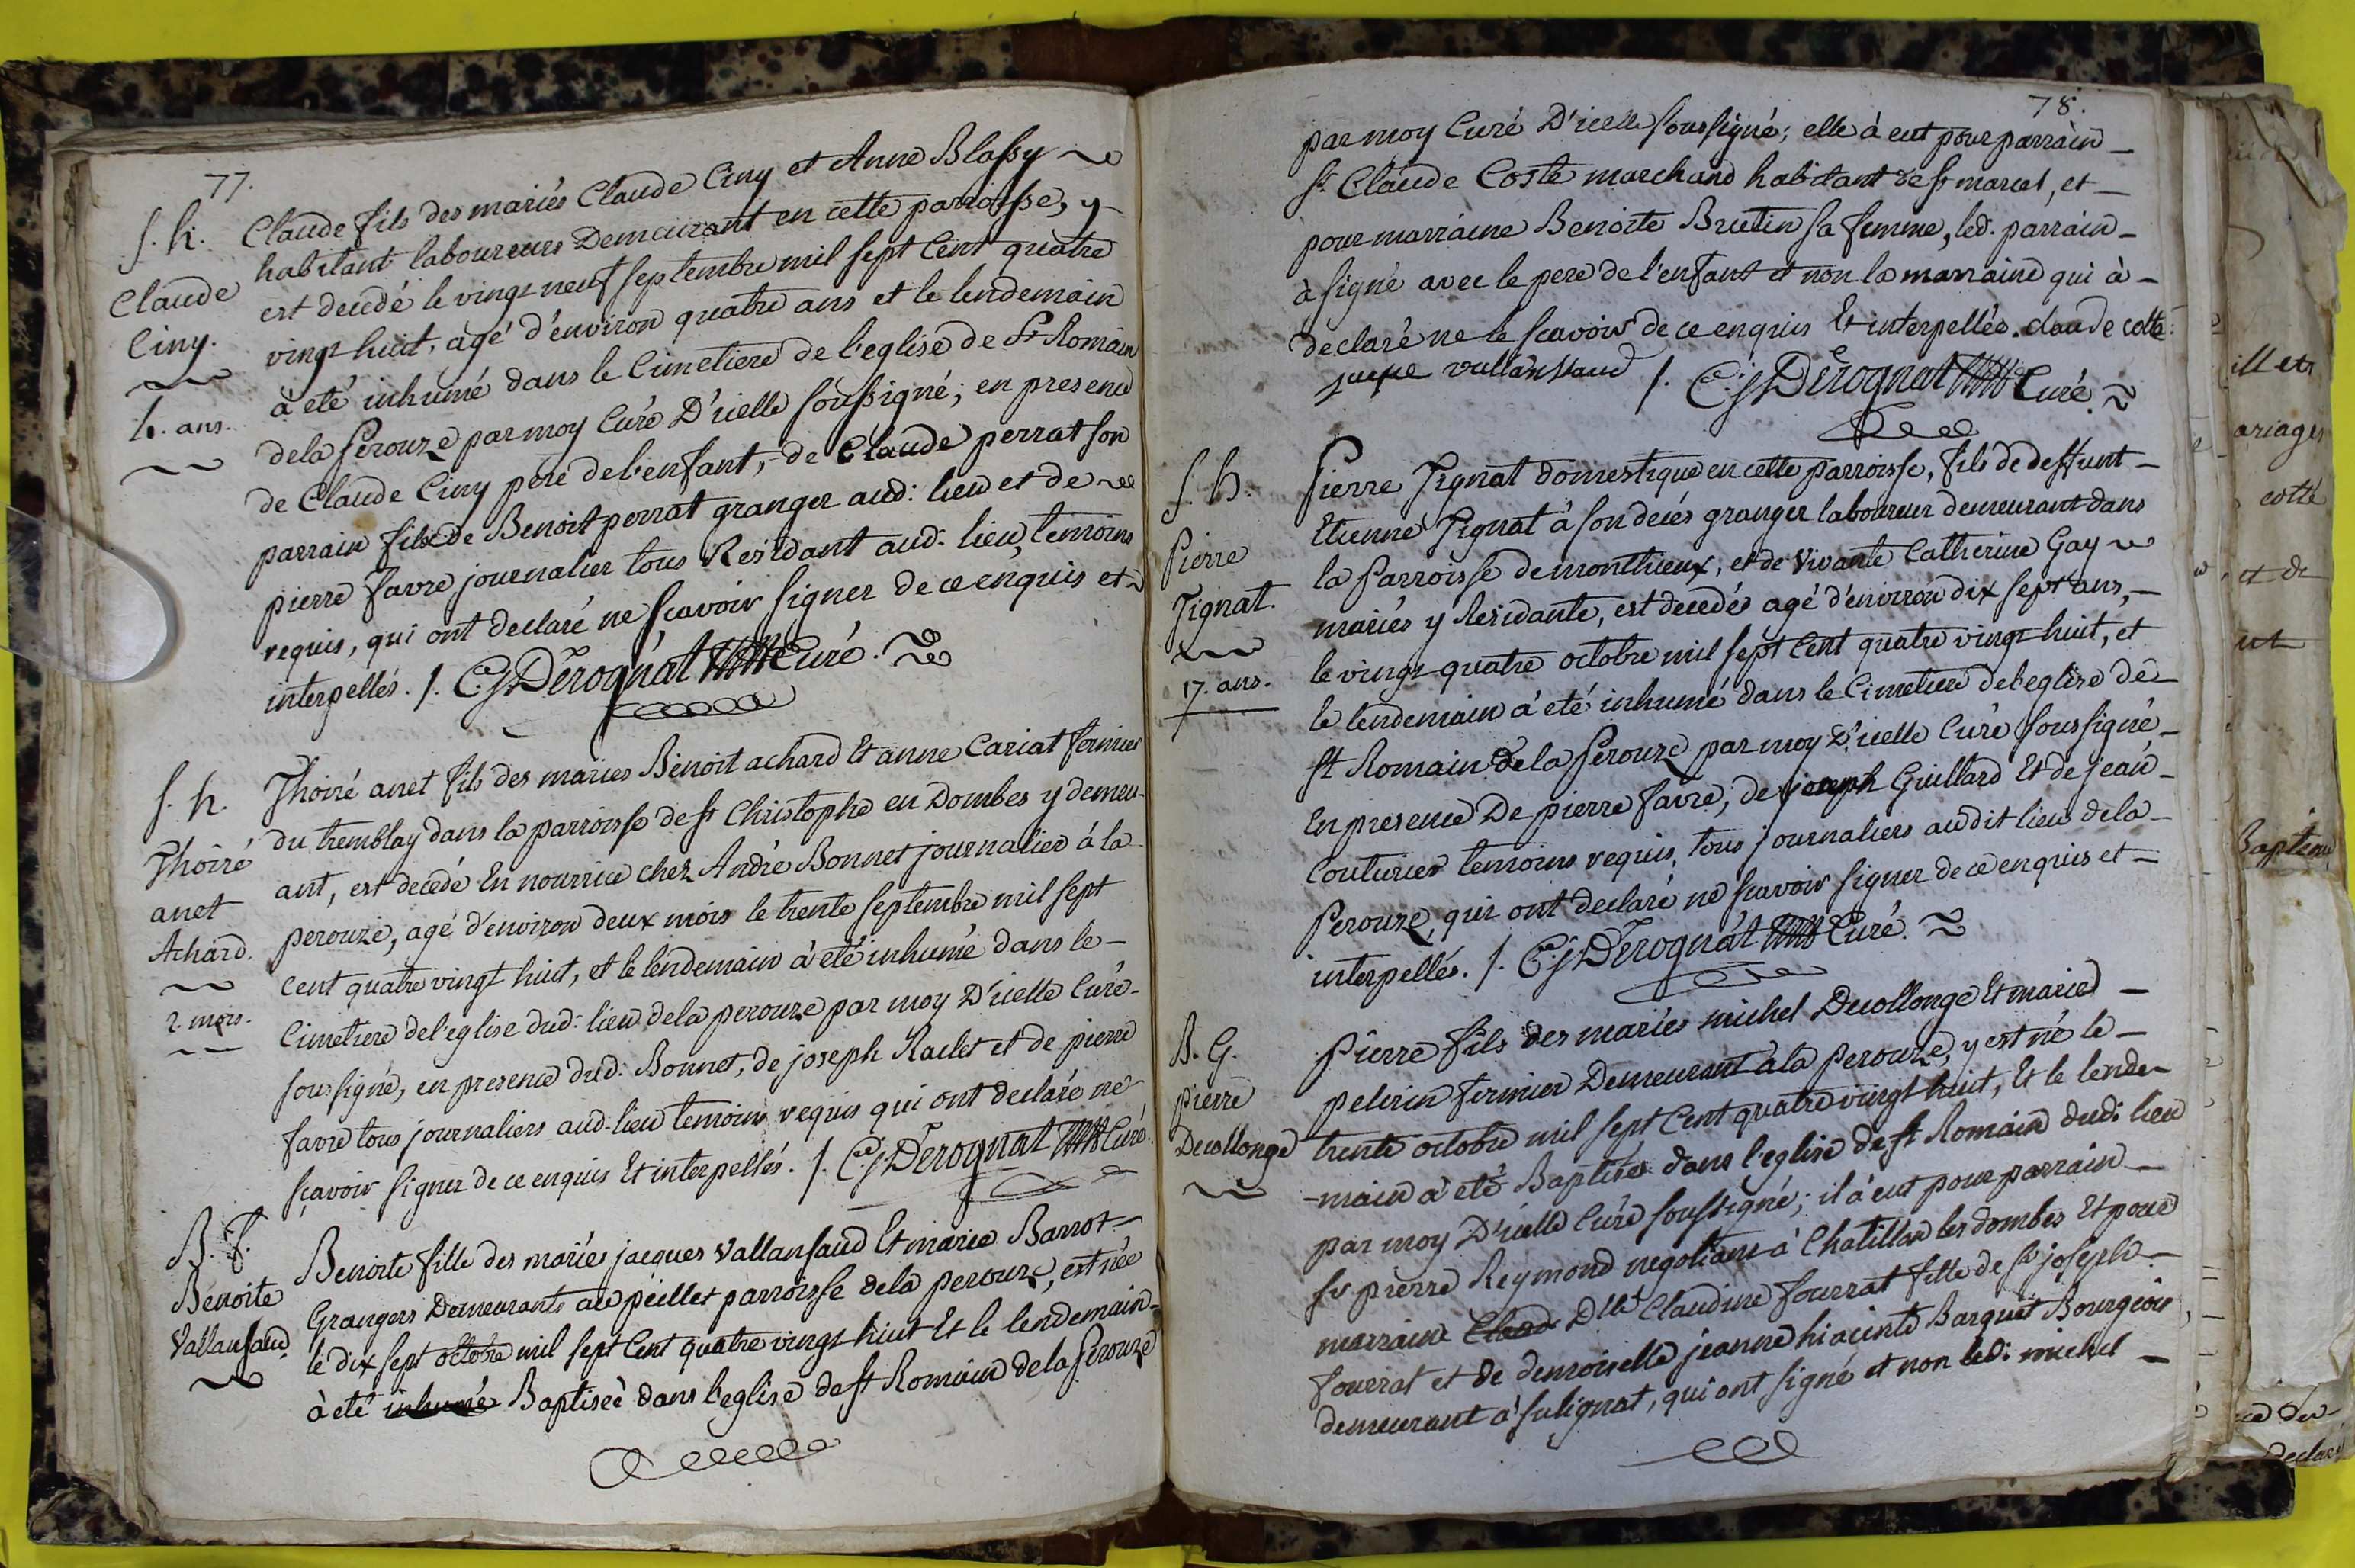 77.
S. h.
Claude
Ciny.
4. ans.
Claude fils des mariés Claude Ciny et Anne Blassy
habitant laboureurs Demeurant en cette parroisse, y
est decedé le vingt neuf septembre mil sept Cent quatre
vingt huit, agé d'environ quatre ans et le lendemain
à eté inhumé dans le Cimetiere de l'eglise de St Romain
dela Perouze par moy Curé D'icelle soussigné; en presence
de Claude Ciny pere de l'enfant, de Claude perrat son
parrain fils de Benoit perrat granger aud: lieu et de
pierre favre journalier tous Residant aud: lieu, temoins
requis, qui ont declaré ne scavoir signer de ce enquis et
interpellés. /. C. J. Derognat Curé.
S. h.
Thoiré
anet
Achard.
2. mois.
Thoiré anet fils des mariés Benoit achard Et anne Cariat fermier
du tremblay dans la parroisse de St Christophe en Dombes y demeu-
ant, est decedé En nourrice chez André Bonnet journalier à la
perouze, agé d'environ deux mois le trente septembre mil sept
Cent quatre vingt huit, et le lendemain à eté inhumé dans le
Cimetiere de l'eglise dud: lieu dela perouze par moy D'icelle Curé
soussigné, en presence dud: Bonnet, de joseph Raclet et de pierre
favre tous journaliers aud: lieu temoins requis qui ont declaré ne
sçavoir signer de ce enquis Et interpellés. /. C. J. Derognat Curé.
B. f.
Benoite
Vallansaud.
Benoite fille des mariés jacques Vallansaud Et marie Barrot
Grangers Demeurants au peillet parroisse dela perouze, est née
le dix sept octobre mil sept Cent quatre vingt huit Et le lendemain
à eté inhumé Baptiseé dans l'eglise de St Romain dela Perouze
78.
par moy Curé D'icelle soussigné; elle à eut pour parrain
Sr Claude Coste marchand habitant de St marcel, et
pour marraine Benoite Brutin sa femme, led. parrain
à signé avec le pere de l'enfant et non la marraine qui à
declaré ne le scavoir de ce enquis Et interpellés. claude cotte
vallansaud /. C. J. Derognat Curé.
S. h.
Pierre
Tignat.
17. ans.
Pierre Tignat domestique en cette parroisse, fils de deffunt
Etienne Tignat à son decés granger laboureur demeurant dans
la Parroisse de monthieux, et de Vivante Catherine Gay
mariés y Residante, est decedés agé d'environ dix sept ans,
le vingt quatre octobre mil sept Cent quatre vingt huit, et
le lendemain à eté inhumé dans le Cimetiere de l'eglise de
St Romain dela Perouze par moy D'icelle Curé soussigné
En presence De pierre favre, de joseph Guillard Et de jean
Couturier temoins requis, tous journaliers audit lieu dela
Perouze, qui ont declaré ne scavoir signer de ce enquis et
interpellés. /. C. J. Derognat Curé.
B. G.
Pierre
Decollonge
Pierre fils des mariés michel Decollonge Et marie
pelerin fermier Demeurant à la Perouze, y est né le
trente octobre mil sept Cent quatre vingt huit, Et le lende-
-main à eté Baptisé dans l'eglise de St Romain dudi lieu
par moy D'icelle Curé soussigné; il à eut pour parrain
Sr pierre Reymond negotiant à Chatillon les dombes Et pour
marraine Dlle Claudine fourrat fille de Sr joseph
fourrat et de demoiselle jeanne hiacinte Barquet Bourgeois
demeurant à sulignat, qui ont signé et non ledi michel
ariages
cotté
et de
Baptem
declaré